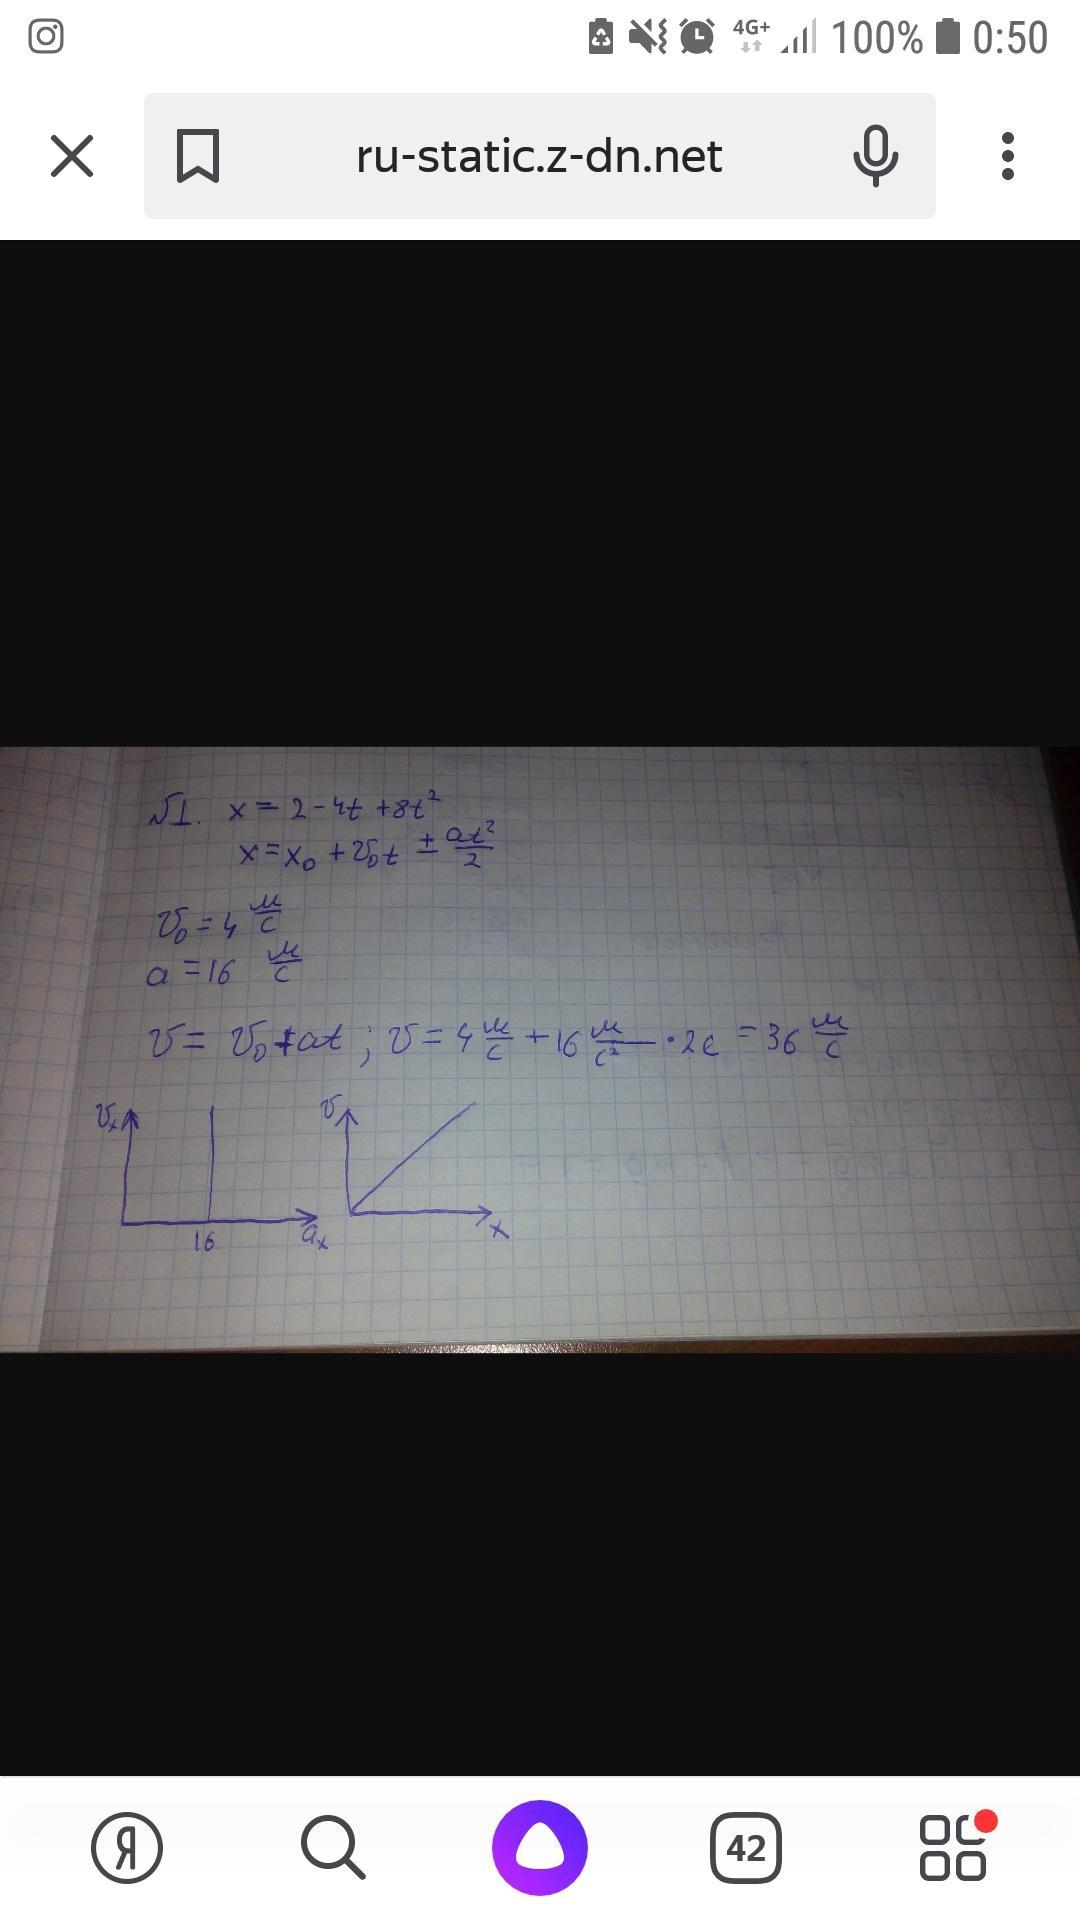 4G+ 100% 0:50
ru-static.z-dn.net
№1. x = 2 - 4t + 8t²
x = x₀ + v₀t ± at²/2
v₀ = 4 м/с
a = 16 м/с
v = v₀ + at ; v = 4 м/с + 16 м/с² · 2с = 36 м/с
vₓ v
16 aₓ x
Я 42